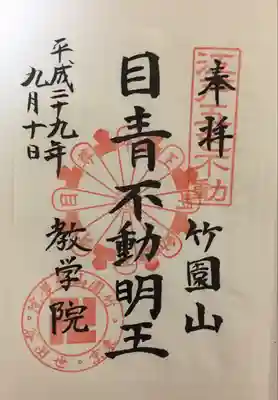 奉拝
竹園山
目青不動明王
教学院
平成二十九年
九月十日
江戸五色不動